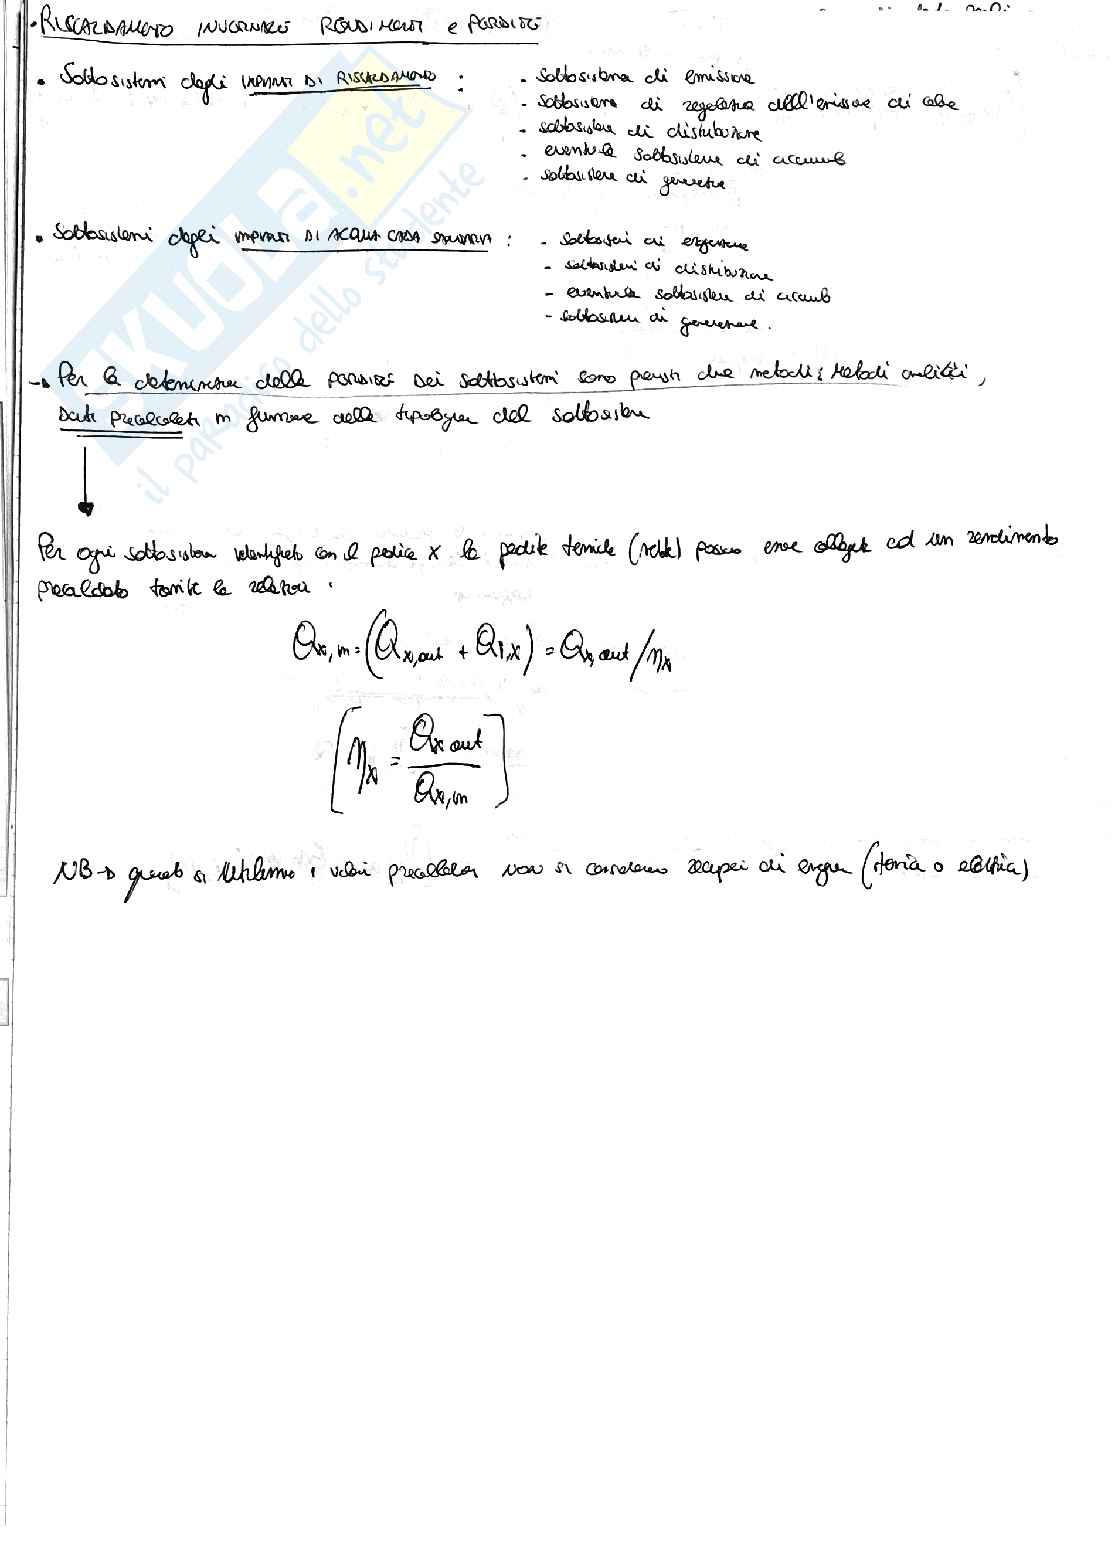 • RISCALDAMENTO INVERNALE RENDIMENTI e PERDITE
• Sottosistemi degli IMPIANTI DI RISCALDAMENTO :
- sottosistema di emissione
- sottosistema di regolazione dell'emissione di calore
- sottosistema di distribuzione
- eventuale sottosistema di accumulo
- sottosistema di generazione
• Sottosistemi degli IMPIANTI DI ACQUA CALDA SANITARIA :
- sottosistemi di erogazione
- sottosistemi di distribuzione
- eventuale sottosistema di accumulo
- sottosistemi di generazione.
→ Per la determinazione delle PERDITE DEI sottosistemi sono previsti due metodi: Metodi analitici,
Dati precalcolati in funzione della tipologia del sottosistema
Per ogni sottosistema identificato con il pedice x le perdite termiche (nette) possono essere collegate ad un rendimento
precalcolato tramite la relazione :
Qx,in = (Qx,out + Ql,x) = Qx,out / ηx
[ηx = Qx,out / Qx,in]
NB → quando si utilizzano i valori precalcolati non si considerano recuperi di energia (termica o elettrica)
SKUOLA.net
il paradiso dello studente